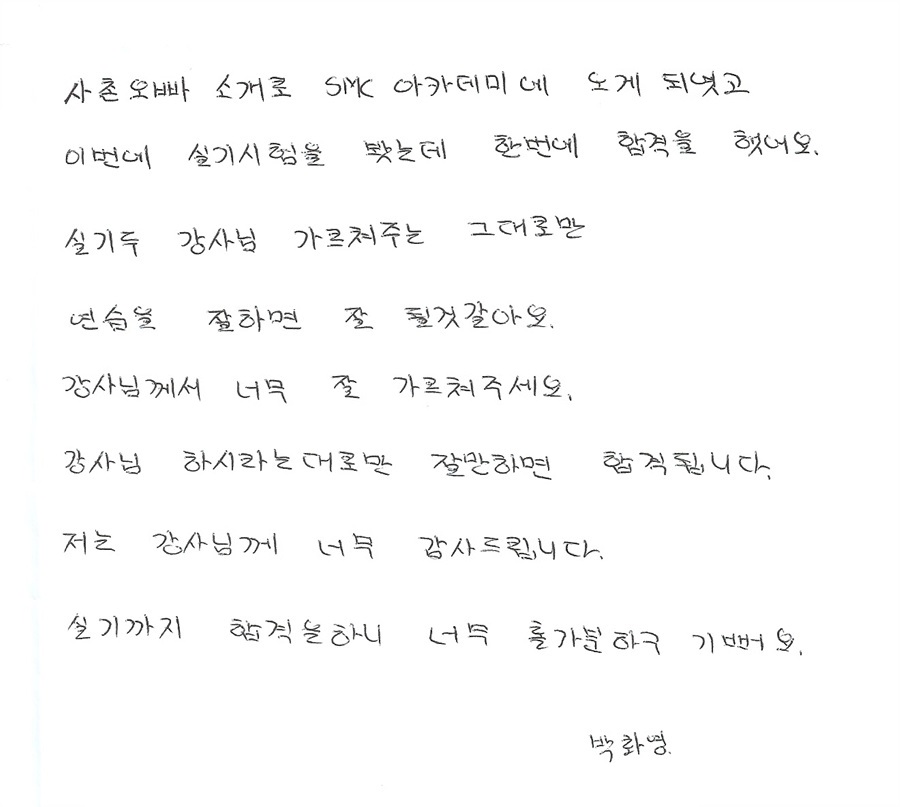 사촌오빠 소개로 SMK 아카데미에 오게 되엿고
이번에 실기시험을 봣는데 한번에 합격을 했어요.
실기두 강사님 가르쳐주는 그대로만
연습을 잘하면 잘 될것같아요.
강사님께서 너무 잘 가르쳐주세요.
강사님 하시라는대로만 잘만하면 합격됩니다.
저는 강사님께 너무 감사드립니다.
실기까지 합격을하니 너무 홀가분하구 기뻐요.
박화영.